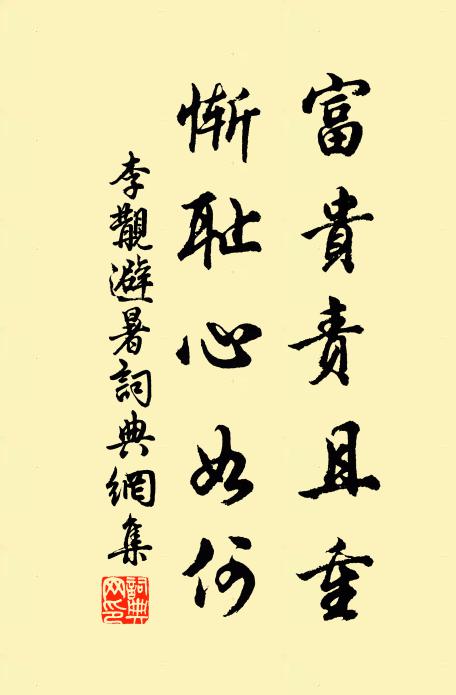 富貴責且重
慚耻心如何
李覯避暑詞典網集
詞典网印